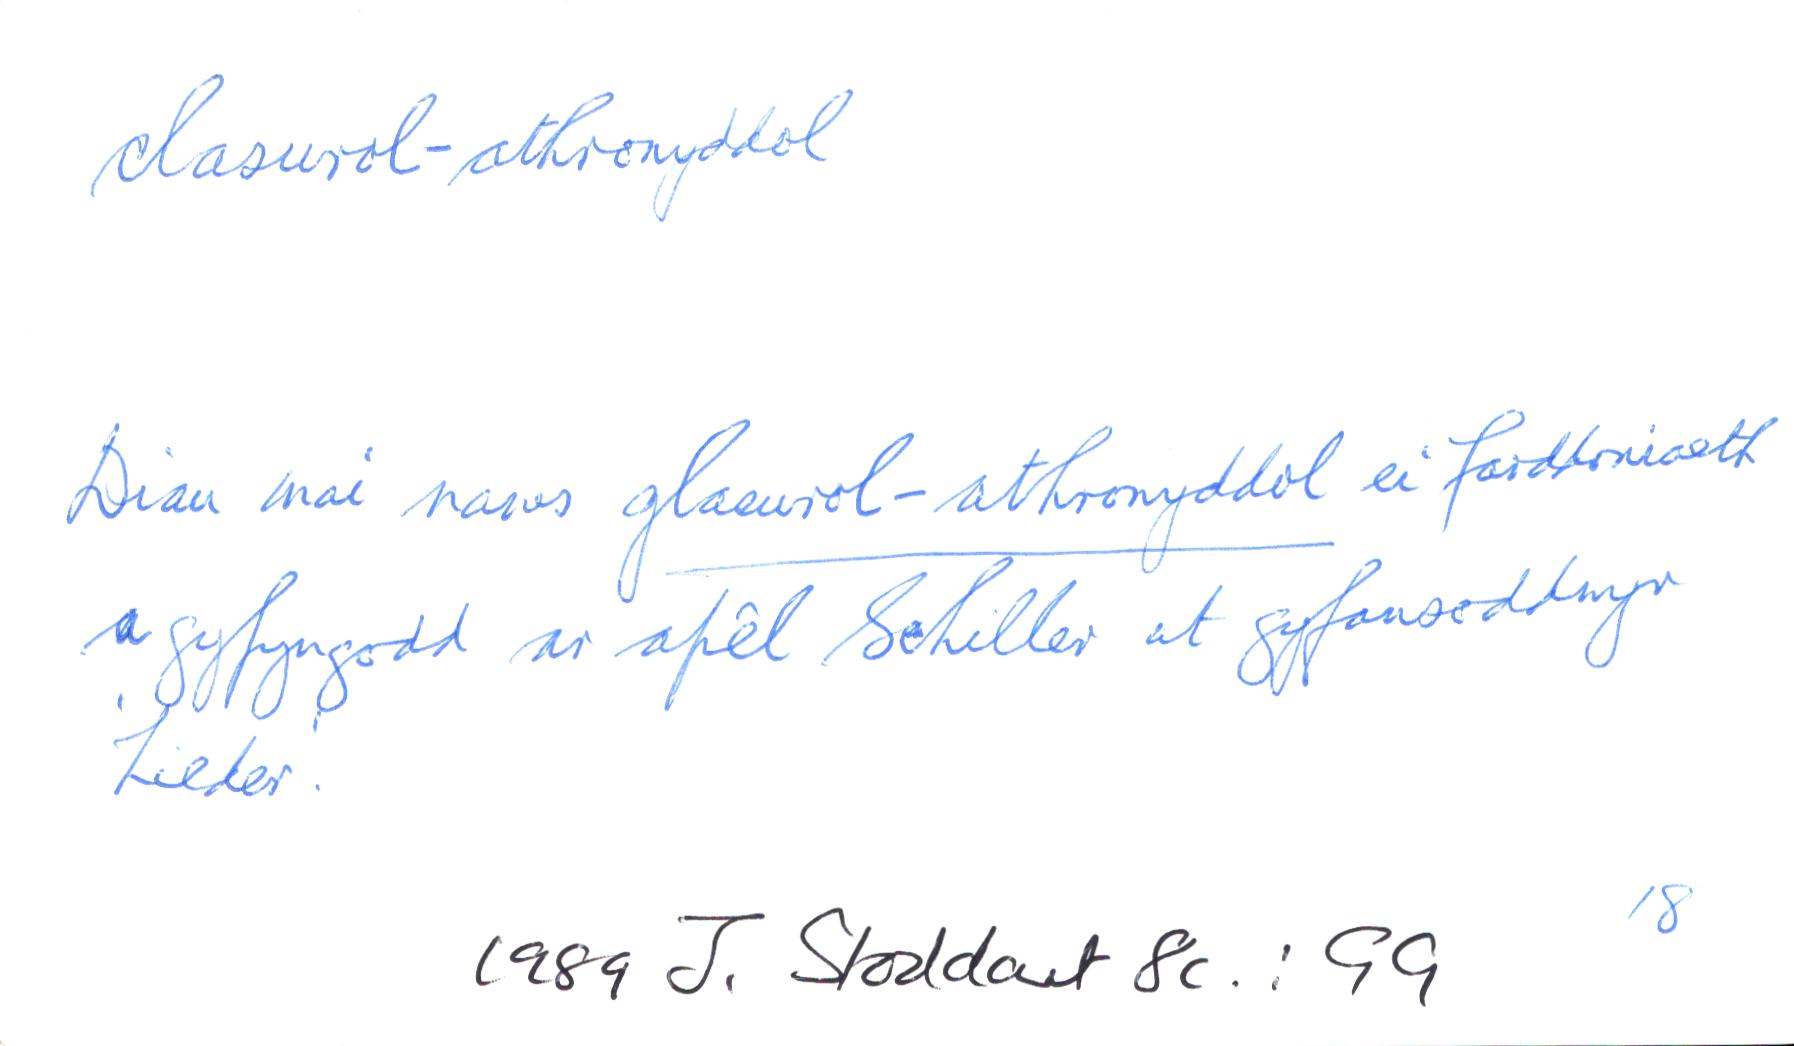 clasurol-athronyddol
Diau mai naws glasurol-athronyddol ei farddoniaeth
a gyfyngodd ar apêl Schiller at gyfansoddwyr
'Lieder'.
18
1989 J. Stoddart Sc.: GG